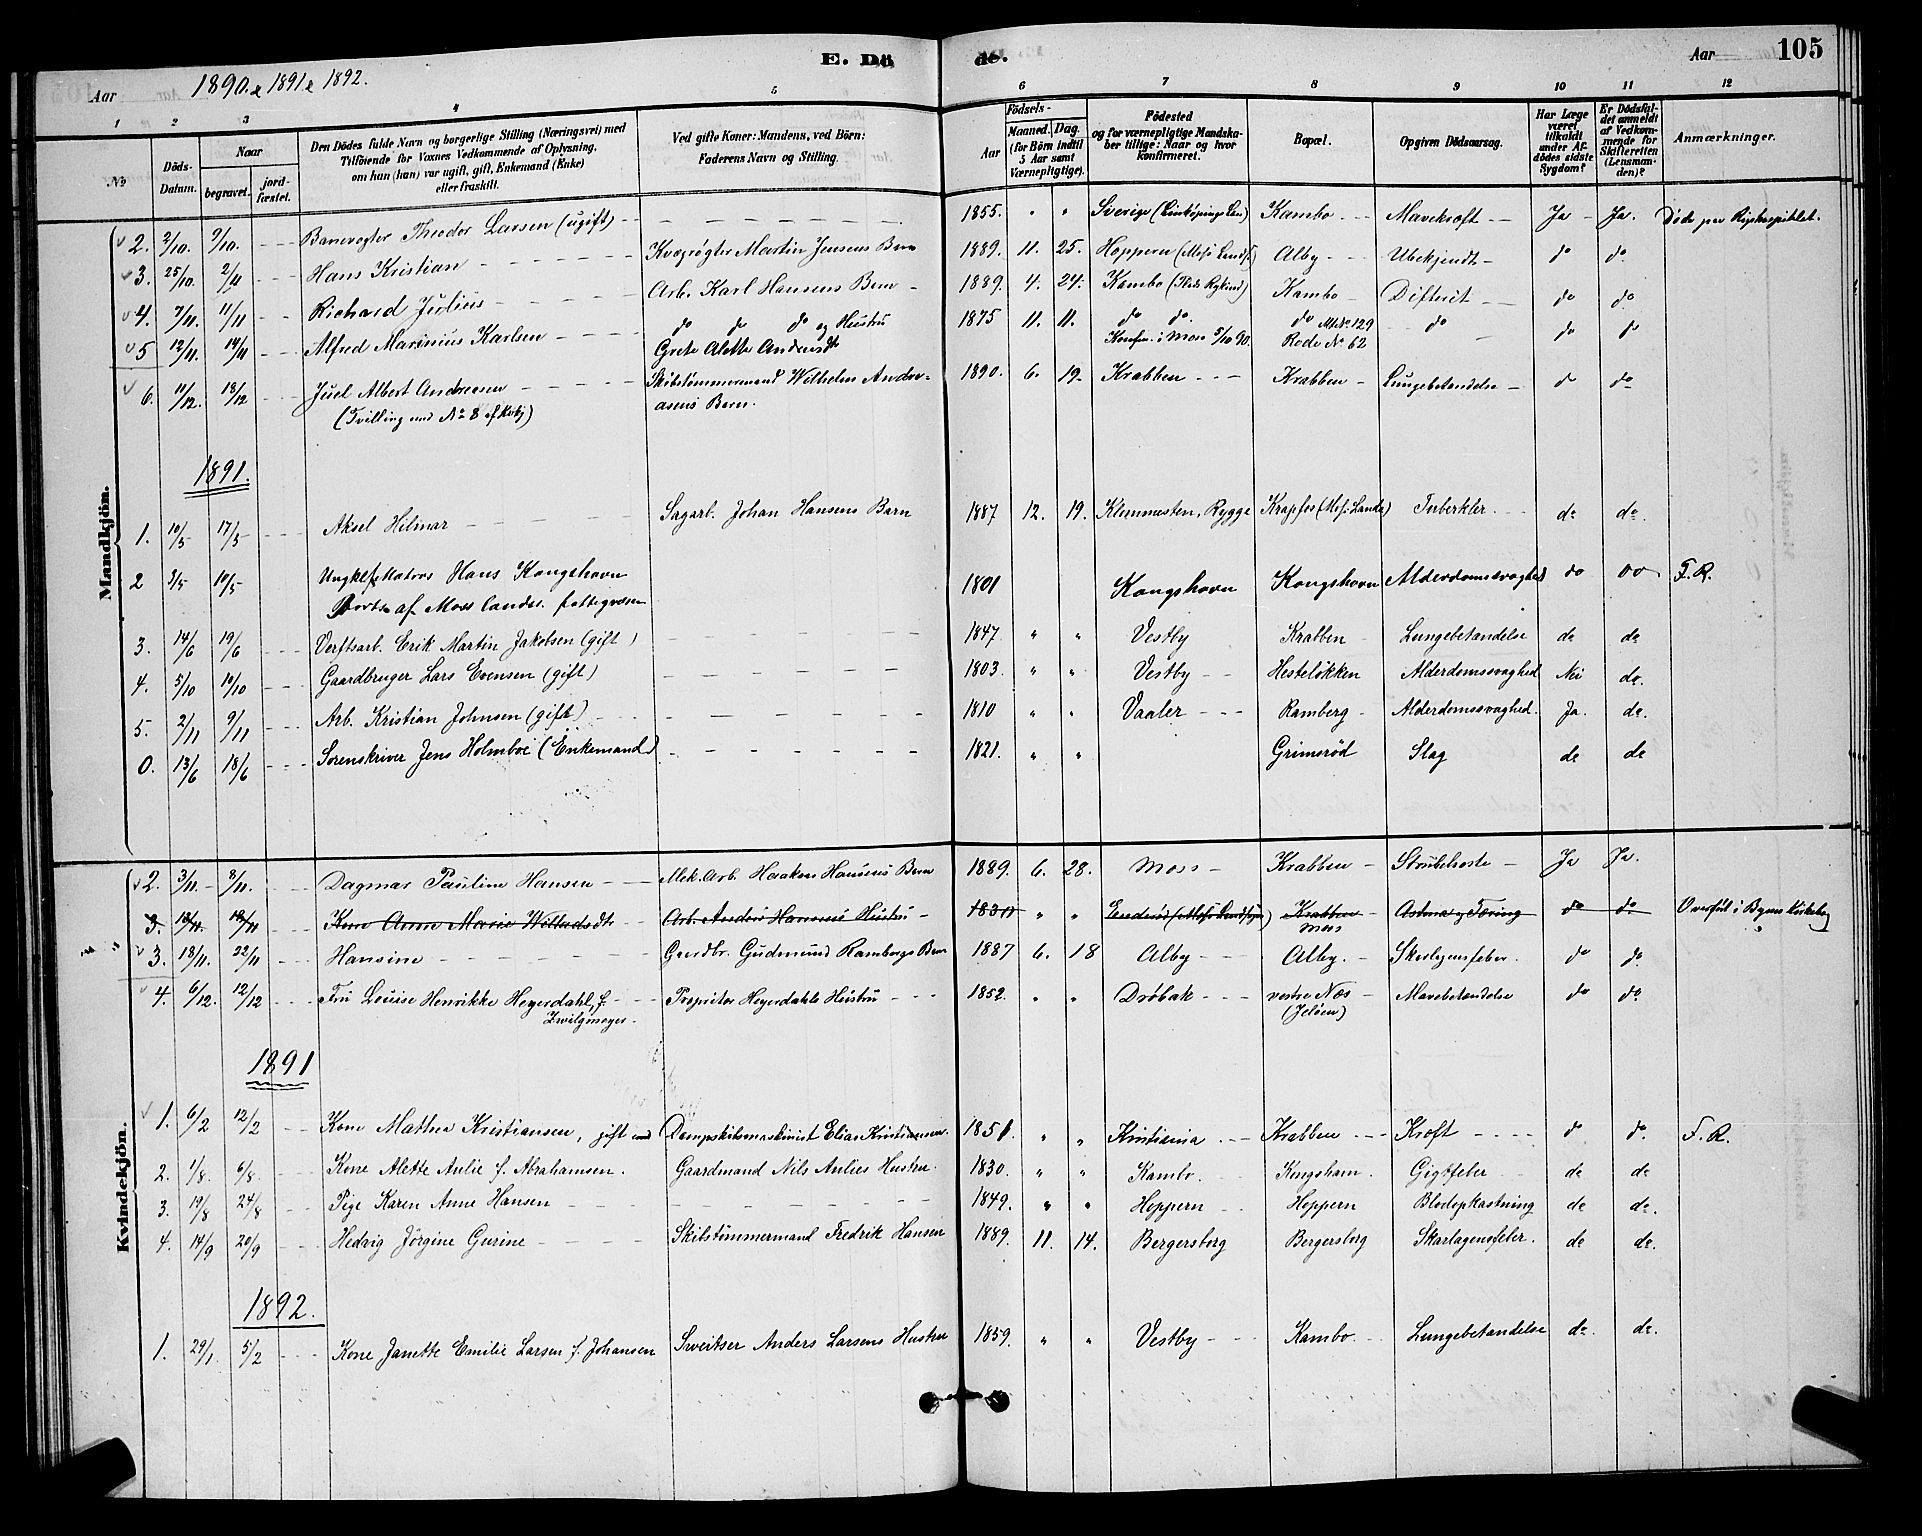 E. Dö
de.
Aar 1890 & 1891 & 1892.
Aar 105
1 2 3 4 5 6 7 8 9 10 11 12
No
Döds-Datum.
Naar
begravet.
jord-fæstet.
Den Dödes fulde Navn og borgerlige Stilling (Næringsvei) med
Tilföiende for Voxnes Vedkommende af Oplysning,
om han (hun) var ugift, gift, Enkemand (Enke)
eller fraskilt.
Ved gifte Koner: Mandens, ved Börn:
Faderens Navn og Stilling.
Födsels-
Aar
Maaned. Dag.
(for Börn indtil
5 Aar samt
Værnepligtige).
Födested
og for værnepligtige Mandska-
ber tillige: Naar og hvor
konfirmeret.
Bopæl.
Opgiven Dödsaarsag.
Har Læge
været
tilkaldt
under Af-
dödes sidste
Sygdom?
Er Dödsfal-
det anmeldt
af Vedkom-
mende for
Skifteretten
(Lensman-
den)?
Anmærkninger.
Mandkjön.
2. 2/10. 9/10. Banevogter Theodor Larsen (ugift) 1855. " " Sverige (Linköpings Len) Kambo Mavekræft Ja Ja. Döde paa Rigshospitalet.
3. 25/10. 2/11 Hans Kristian Kvægrögter Martin Jensens Barn 1889. 11. 25. Hoppern (Moss Lands) Alby Ubekjendt do do
4. 7/11. 11/11 Richard Julius Arb. Karl Hansens Barn 1889. 4. 24. Kambo Kambo Difterit do do
5 12/11. 14/11 Alfred Marinius Karlsen do do do og Hustru 1875 11. 11. do do. do Mt. No. 129 do do do
Grete Alette Andersdt Konfirm. i Moss 5/10 90. Rode No 62
6. 11/12. 18/12 Juel Albert Andreasen Skibstömmermand Wilhelm Andre- 1890. 6. 19. Krabben Krabben Lungebetændelse do do
(Tvilling med No 8 af Kvkj) asens Barn.
1891.
1. 10/5 17/5 Aksel Hilmar Sagarb. Johan Hansens Barn 1887 12. 19. Klommesten, Rygge Krapfos (Mos. Lands) Tuberkler. do do.
2 3/5 10/5 Ungkf Matros Hans Kongshavn 1801 Kongshavn Kongshavn Alderdomssvaghed do do F. R.
Forts. af Moss lands. fattigvæsen
3. 14/6 19/6 Verftsarb. Erik Martin Jakobsen (gift) 1847. " " Vestby Krabben Lungebetændelse do do
4. 5/10 10/10 Gaardbruger Lars Evensen (gift) 1803 " " Vestby Hesteløkken Alderdomssvaghed Nei do.
5. 2/11 9/11 Arb. Kristian Johnsen (gift) 1810 " " Vaaler Ramberg Alderdomssvaghed. Ja. do.
0. 13/6 18/6 Sorenskriver Jens Holmboe (Enkemand) 1821. " " Grimsröd Slag do do
Kvindekjön.
2. 3/11 8/11. Dagmar Pauline Hansen Mek. Arb. Haakon Hansens Barn 1889. 6. 28. Moss Krabben Strubehoste Ja Ja.
3. 13/11. 19/11 Kone Anne Marie Willadsdt Arb. Anders Hansens Hustru 1830 " " (Moss Landsogn) Krabben Astma og Tæring do do Overfört i Byens Kirkebog
Moss
3. 18/11. 22/11 Hansine Gaardbr. Gudmund Rambergs Barn 1887 6. 18 Alby Alby. Skarlagensfeber. do do.
4. 6/12. 12/12 Fru Louise Henrikke Heyerdahl, f. Propritær Heyerdahls Hustru 1852. " " Dröbak vestre Næs Mavebetændelse do do
Zwilgmeyer (Jelöen)
1891
1. 6/2 12/2 Kone Mathea Kristiansen, gift med Dampskibsmaskinist Elias Kristiansen. 1851. " " Kristiania Krabben Kræft do do. F. R.
2. 1/8. 6/8. Kone Alette Aulie f. Abrahamsen. Gaardmand Nils Aulies Hustru. 1830. " " Kambo. Kongshavn. Gigtfeber do do
3. 19/8 24/8 Pige Karen Anne Hansen 1849. " " Hoppern Hoppern Blodopkastning do do.
4. 14/9 20/9 Hedvig Jörgine Gurine Skibstömmermand Fredrik Hansen 1889. 11. 14. Bergersborg Bergersborg Skarlagensfeber. do do.
1892.
1. 29/1. 5/2 Kone Janette Emilie Larsen f. Johansen Sveitser Anders Larsens Hustru 1859. " " Vestby Kambo Lungebetændelse do. do.